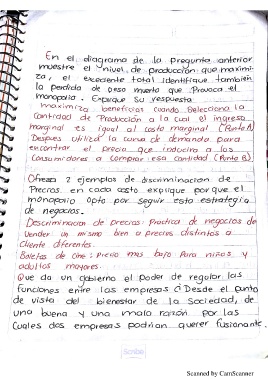 En el diagrama de la pregunta anterior
muestre el nivel de producción que maximi-
za, el excedente total identifique también
la perdida de peso muerto que provoca el
monopolio. Explique su respuesta
maximiza beneficios cuando Selecciona la
Cantidad de Producción a la cual el ingreso
marginal es igual al costo marginal (Punto A)
Despues utiliza la curva de demanda para
encontrar el precio que induciria a los
Consumidores a Comprar esa Cantidad (Punto B)
Ofresca 2 ejemplos de discriminación de
Precios. en cada costo explique por que el
monopolio Opto por seguir esta estrategia
de negocios.
Descriminacion de precios: Practica de negocios de
Vender un mismo bien a precios distintos a
Cliente diferentes.
Boletos de Cine: Precio mas bajo Para niños y
adultos mayores.
Que da un gobierno el poder de regular las
funciones entre las empresas ¿Desde el punto
de vista del bienestar de la Sociedad, de
una buena y una mala razón por las
Cuales dos empresas podrian querer fusionante.
Scribe
Scanned by CamScanner